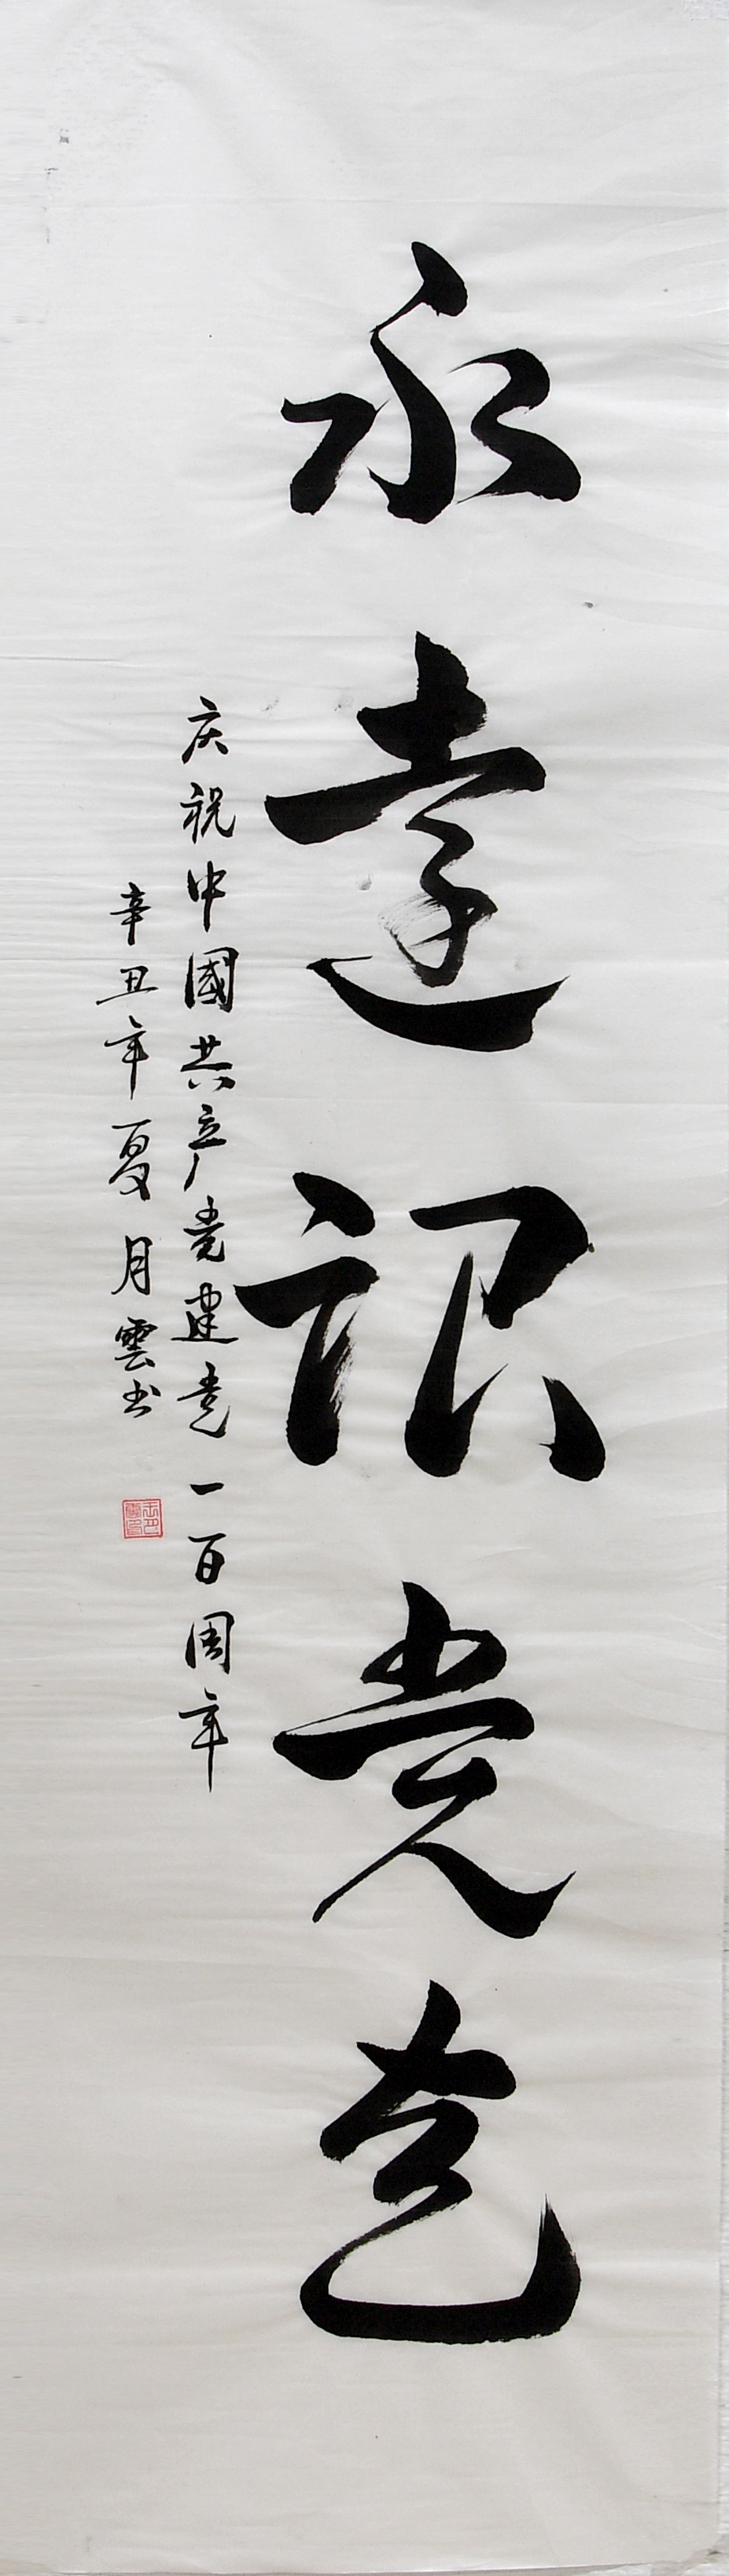 永遠跟党走
庆祝中國共产党建党一百周年
辛丑年夏月雲书